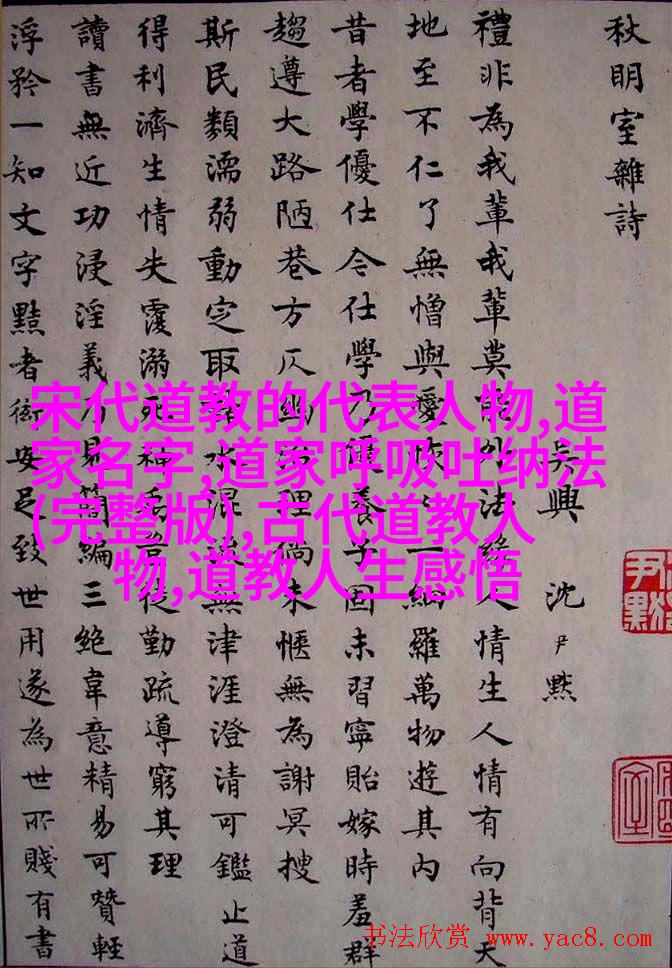 秋明室雜詩
吳興 沈尹默
禮非為我輩我輩莫能外法緣人情生人情有向背天
地至不仁了無憎與愛恢恢一網羅萬物遊其內
昔者學優仕今仕學乃優養子固未習寧貽嫁時羞群
趨遵大路陋巷方仄理倘未愜無為謝冥搜
斯民類濡弱動定取水混無津涯澄清可鑑止道
得利濟生情失覆溺死使勤疏導窮其理
讀書無近功浸淫義乃易簡編三絕韋意精易可贊輕
浮矜一知文字黠者衒安足致世用遂為世所賤有書
宋代道教的代表人物,道
家名字,道家呼吸吐纳法
(完整版),古代道教人
物,道教人生感悟
尹默
书法欣赏 www.yac8.com